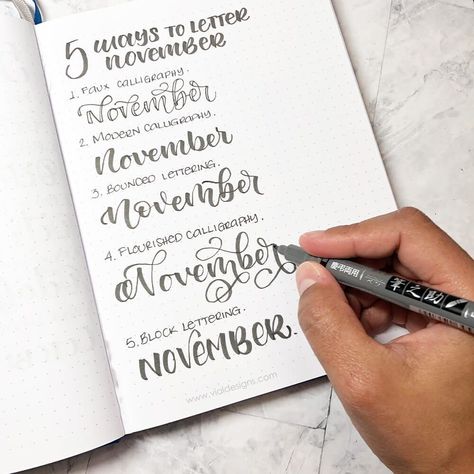 5 WAYS TO LETTER
NOVEMBER
1. FAUX CALLIGRAPHY.
November
2. MODERN CALLIGRAPHY.
November
3. BOUNDED LETTERING.
November
4. FLOURISHED CALLIGRAPHY.
November
5. BLOCK LETTERING.
NOVEMBER.
慶弔両用 筆之助
www.vialdesigns.com